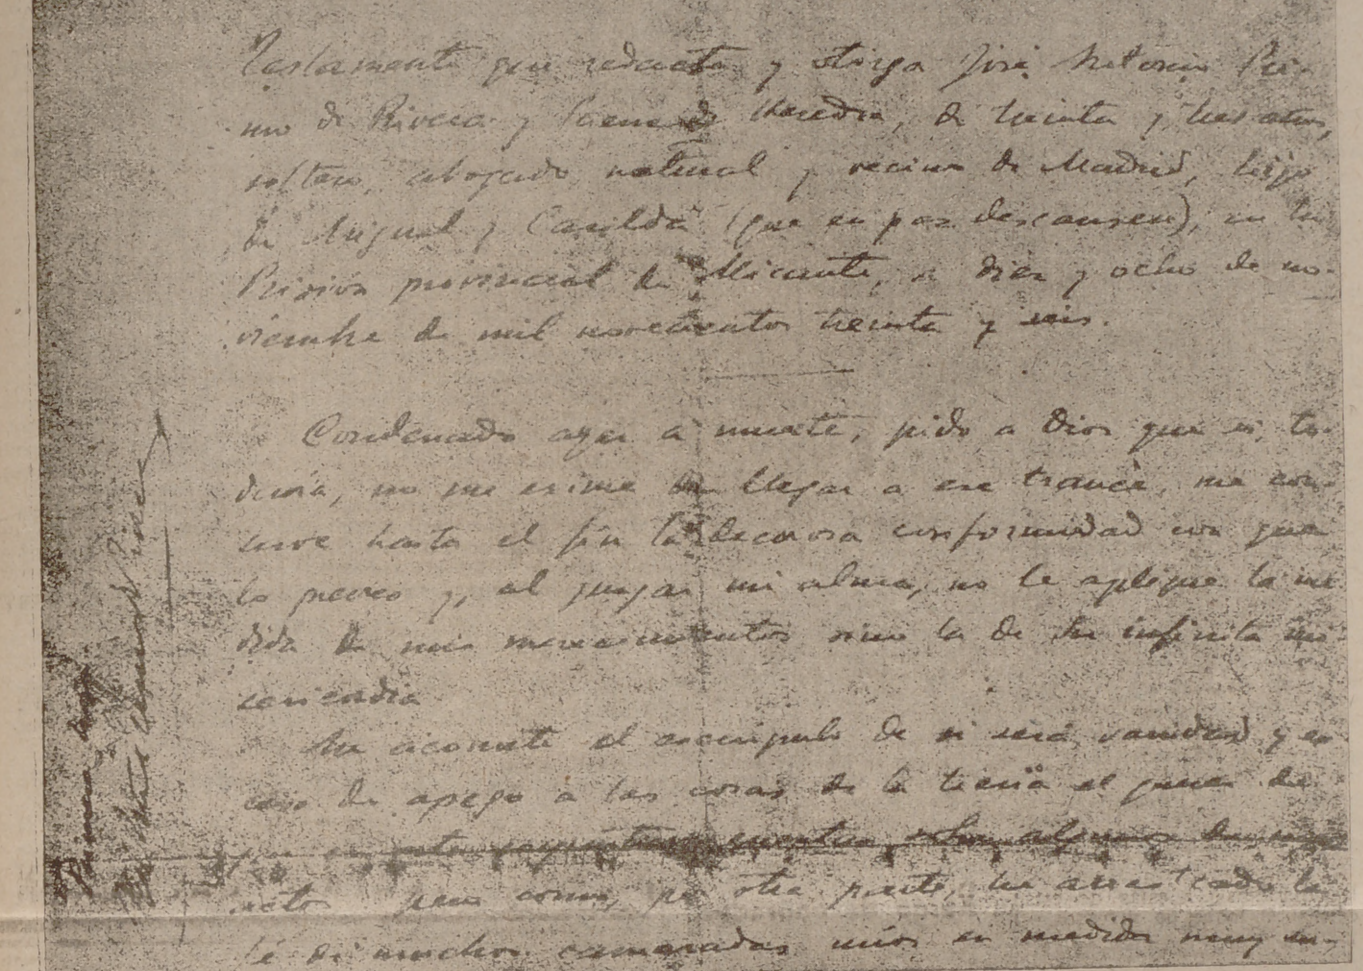 Testamento que redacta y otorga José Antonio Pri-
mo de Rivera y Saenz de Heredia, de treinta y tres años,
soltero, abogado, natural y vecino de Madrid, hijo
de Miguel y Casilda (que en paz descansen), en la
Prisión provincial de Alicante, a diez y ocho de no-
viembre de mil novecientos treinta y seis.
Condenado ayer a muerte, pido a Dios que si, to-
davía, no me exime de llegar a ese trance, me con-
serve hasta el fin la decorosa conformidad con que
lo preveo y, al juzgar mi alma, no le aplique la me
dida de mis merecimientos sino la de su infinita mi
sericordia
Me acomete el escrúpulo de si será vanidad y ex
ceso de apego a las cosas de la tierra el querer de
en esta coyuntura cuentas sobre algunos de mis
actos pero como, por otra parte, he arrastrado la
fé de muchos camaradas míos en medida muy su-
Primera hoja